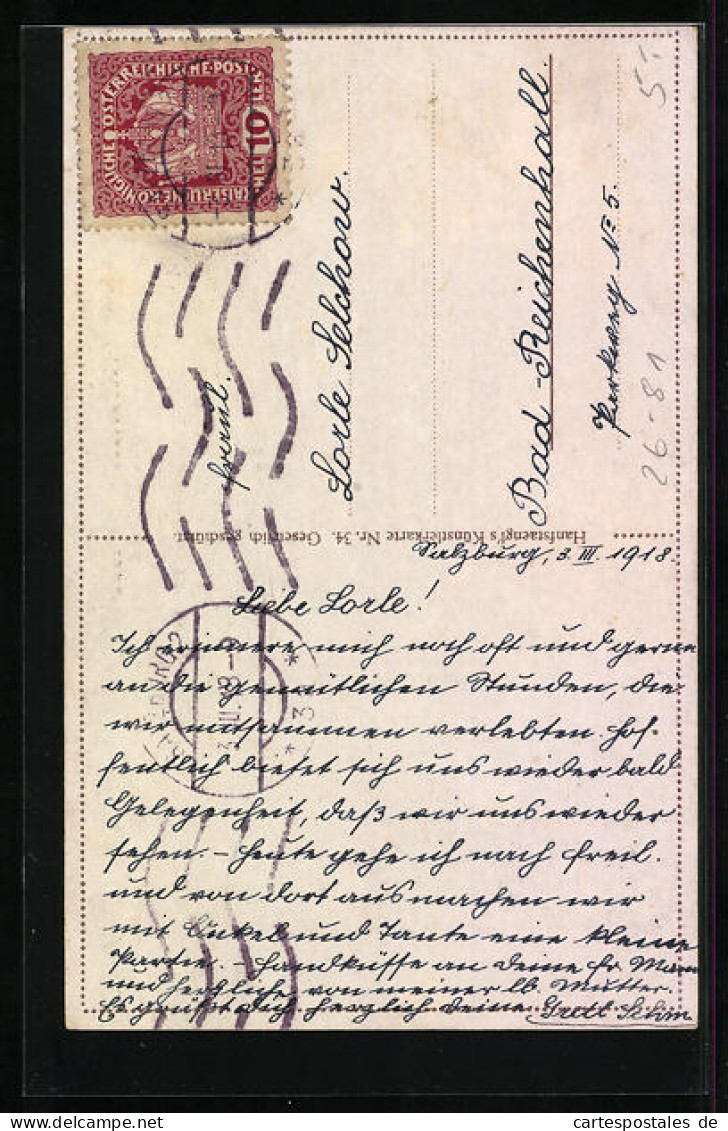 KAISERLICHE KÖNIGLICHE ÖSTERREICHISCHE POST
10 HELLER
Fräul.
Lorle Selchow.
Bad-Reichenhall.
Parkweg № 5.
5.-
26-81
Hanfstaengl's Künstlerkarte Nr. 34. Gesetzlich geschützt.
Salzburg, 3. III. 1918.
Liebe Lorle!
Ich erinnere mich noch oft und gerne
an die gemütlichen Stunden, die
wir mitsammen verlebten. Hof-
fentlich bietet sich uns wieder bald
Gelegenheit, daß wir uns wieder
sehen. – Heute gehe ich nach Freil.
und von dort aus machen wir
mit Onkel und Tante eine kleine
Partie. – Handküsse an deine fr. Mama
und herzliche von meiner lb. Mutter.
Es grüßt dich herzlich deine Gretl
SALZBURG
3
cartespostales de
cartespostales.de